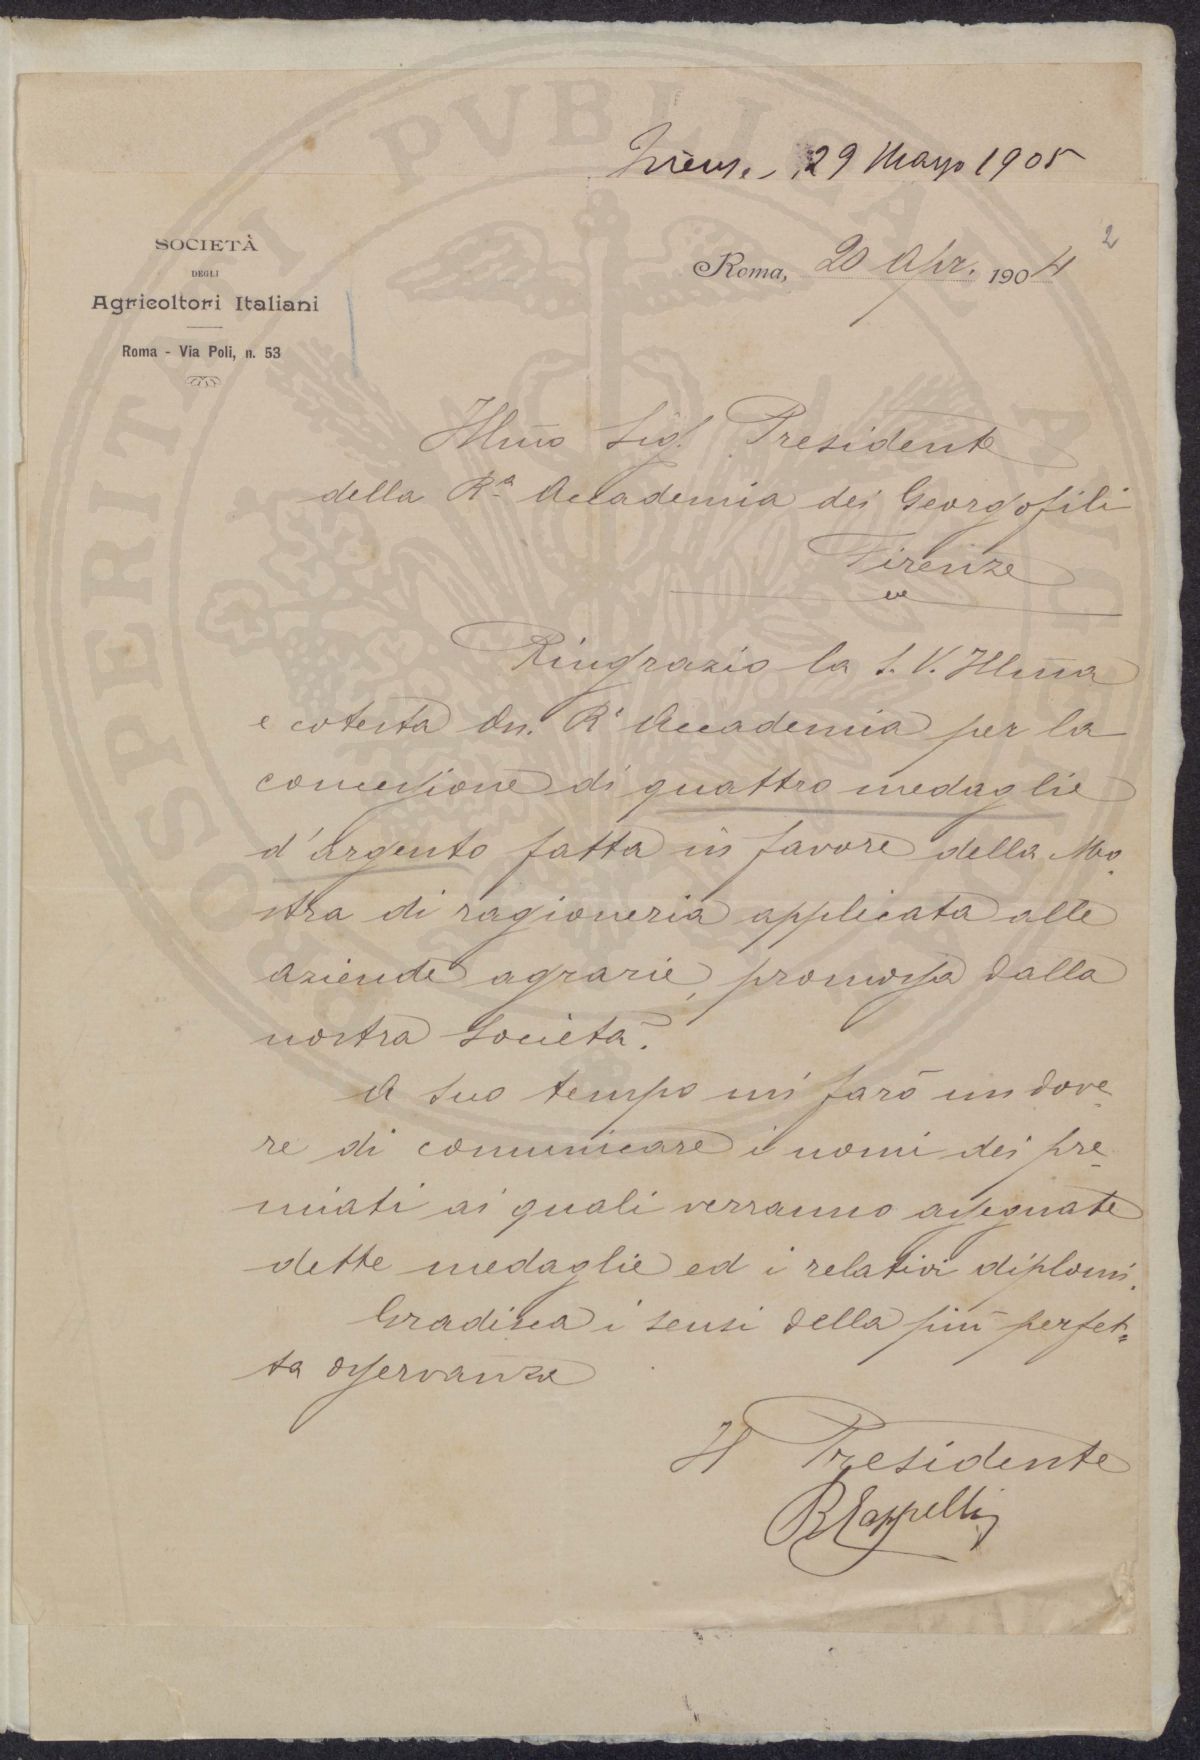 Firenze, 29 Maggio 1905
2
SOCIETÀ
DEGLI
Agricoltori Italiani
Roma - Via Poli, n. 53
Roma, 20 Apr. 1904
Illmo Sig. Presidente
della Ra Accademia dei Georgofili
Firenze
Ringrazio la S. V. Illma
e cotesta On. R. Accademia per la
concessione di quattro medaglie
d'argento fatta in favore della Mo-
stra di ragioneria applicata alle
aziende agrarie, promossa dalla
nostra Società.
A suo tempo mi farò un dove-
re di comunicare i nomi dei pre-
miati ai quali verranno assegnate
dette medaglie ed i relativi diplomi.
Gradisca i sensi della più perfet-
ta osservanza
Il Presidente
R Cappelli
PROSPERITATI PVBLICAE AVGENDAE